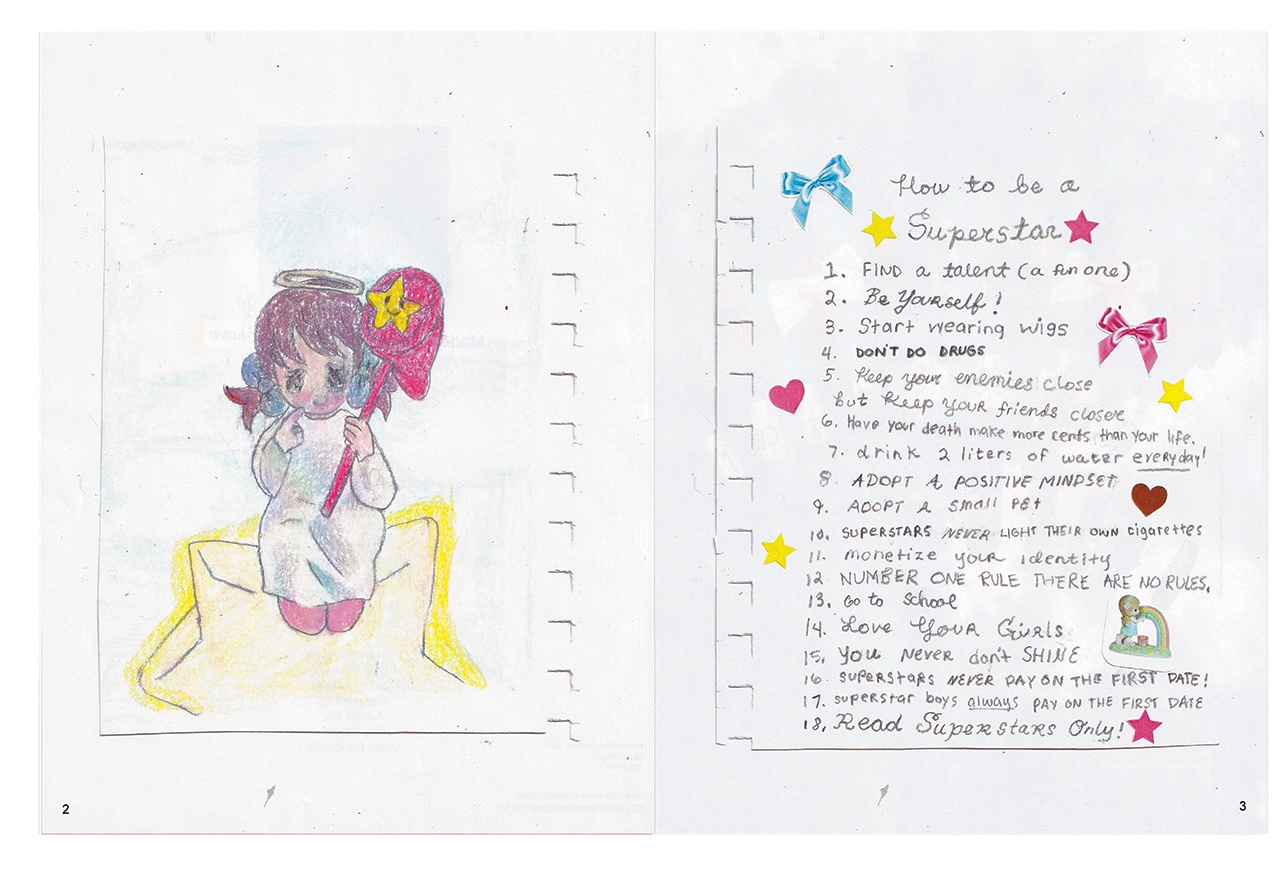 How to be a
Superstar
1. FIND a talent (a fun one)
2. Be Yourself!
3. Start wearing wigs
4. DON'T DO DRUGS
5. Keep your enemies close
but Keep YOUR friends closer
6. Have your death make more cents than your life.
7. drink 2 liters of water everyday!
8 ADOPT A POSITIVE MINDSET
9. ADOPT A small PET
10. SUPERSTARS NEVER LIGHT THEIR OWN cigarettes
11. monetize your identity
12 NUMBER ONE RULE THERE ARE NO RULES.
13. Go to School
14. Love Your Girls
15. YOU NEVER don't SHINE
16. SUPERSTARS NEVER PAY ON THE FIRST DATE!
17. superstar boys always PAY ON THE FIRST DATE
18. Read Superstars Only!
2
3